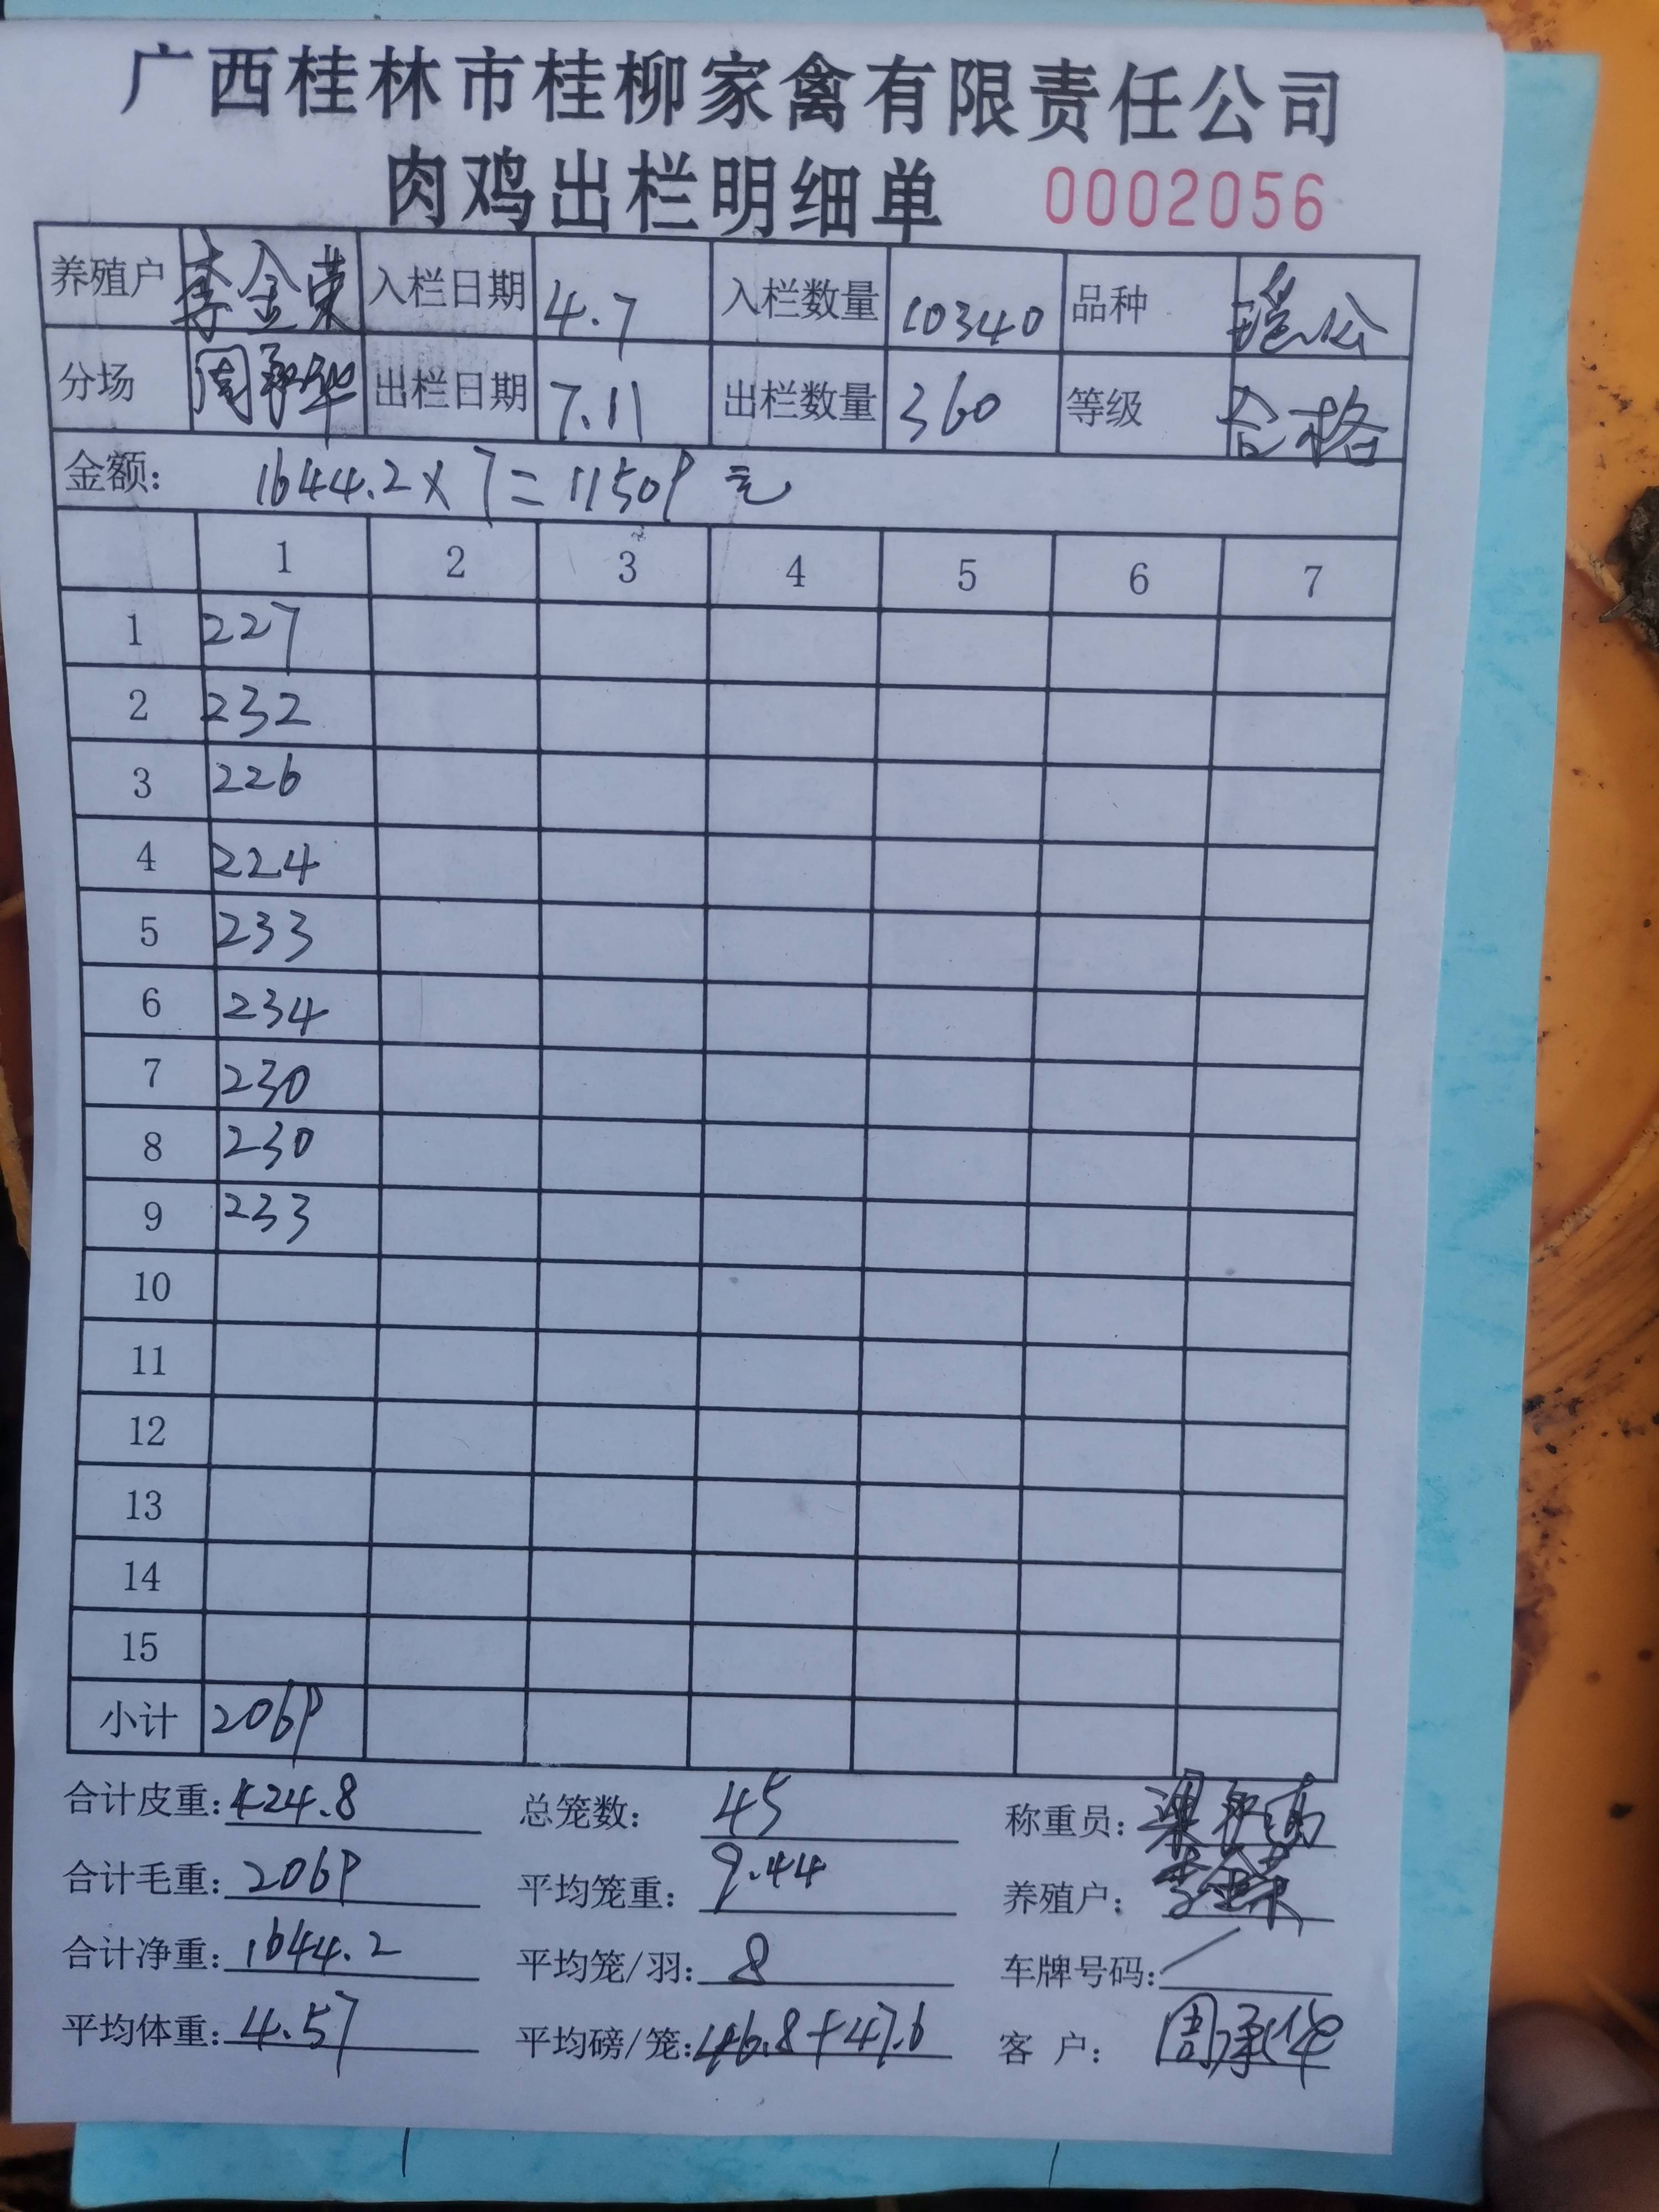 广西桂林市桂柳家禽有限责任公司
肉鸡出栏明细单 0002056
养殖户 李金荣 入栏日期 4.7 入栏数量 10340 品种 瑶公
分场 周承华 出栏日期 7.11 出栏数量 360 等级 合格
金额: 1644.2×7=11509 元
1 2 3 4 5 6 7
1 227
2 232
3 226
4 224
5 233
6 234
7 230
8 230
9 233
10
11
12
13
14
15
小计 2069
合计皮重: 424.8 总笼数: 45 称重员:
合计毛重: 2069 平均笼重: 9.44 养殖户: 李金荣
合计净重: 1644.2 平均笼/羽: 8 车牌号码: /
平均体重: 4.57 平均磅/笼: 46.8+47.6 客户: 周承华